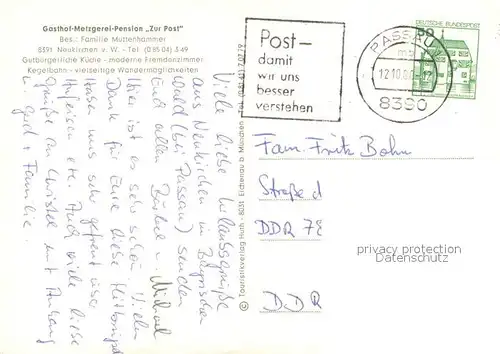 Gasthof-Metzgerei-Pension „Zur Post"
Bes.: Familie Muttenhammer
8391 Neukirchen v. W. - Tel (08504) 349
Gutbürgerliche Küche - moderne Fremdenzimmer
Kegelbahn - vielseitige Wandermöglichkeiten
Viele liebe Urlaubsgrüße
aus Neukirchen im Bayrischen
Wald (bei Passau) senden
Euch allen Bärbel u. Michael
Hier ist es sehr schön. Vielen
Dank für Eure
Haben uns sehr gefreut
etc. Auch viele liebe
Grüße an Christel mit Anhang
u. Gerd + Familie.
© Touristikverlag Hirth - 8031 Eichenau b. München
Post–
damit
wir uns
besser
verstehen
PASSAU
12.10.80
8390
DEUTSCHE BUNDESPOST
50
Fam. Fritz Bohn
Straße d
DDR 78
privacy protection
Datenschutz
DDR